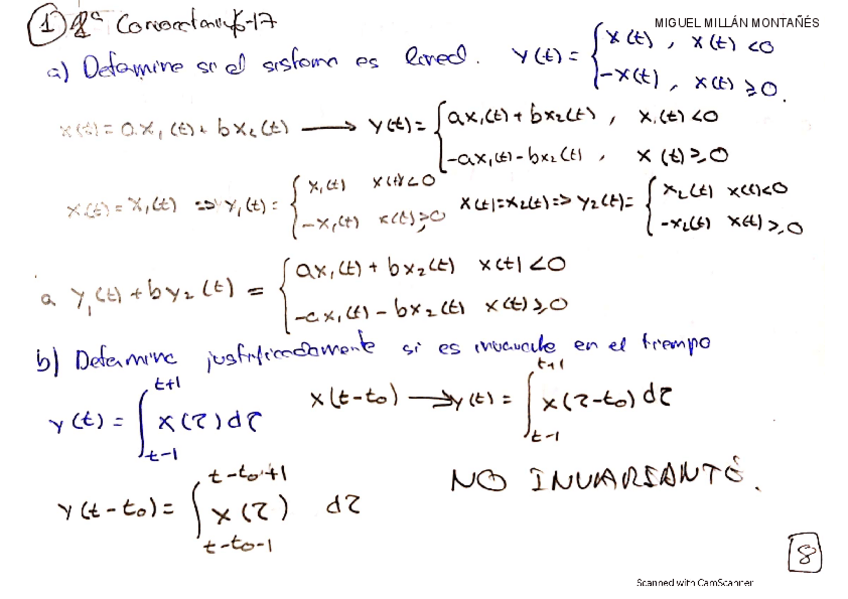 MIGUEL MILLÁN MONTAÑÉS
① 1ª Convocatoria 16-17
a) Determine si el sistema es lineal. y(t) = { x(t), x(t) < 0
-x(t), x(t) ≥ 0.
x(t) = ax₁(t) + bx₂(t) → y(t) = { ax₁(t) + bx₂(t), x(t) < 0
-ax₁(t) - bx₂(t), x(t) ≥ 0
x(t) = x₁(t) => y₁(t) = { x₁(t) x(t) < 0
-x₁(t) x(t) ≥ 0
x(t) = x₂(t) => y₂(t) = { x₂(t) x(t) < 0
-x₂(t) x(t) ≥ 0
a y₁(t) + by₂(t) = { ax₁(t) + bx₂(t) x(t) < 0
-ax₁(t) - bx₂(t) x(t) ≥ 0
b) Determine justificadamente si es invariante en el tiempo
y(t) = ∫_{t-1}^{t+1} x(τ) dτ x(t-t₀) → y(t) = ∫_{t-1}^{t+1} x(τ-t₀) dτ
y(t-t₀) = ∫_{t-t₀-1}^{t-t₀+1} x(τ) dτ NO INVARIANTE.
8
Scanned with CamScanner